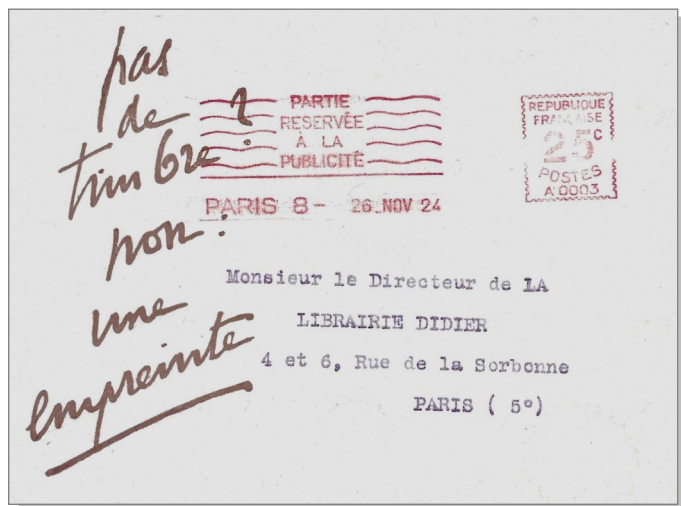 pas
de
timbre ?
non :
une
empreinte
PARTIE
RESERVÉE
À LA
PUBLICITÉ
PARIS 8 - 26.NOV 24
REPUBLIQUE
FRANÇAISE
25c
POSTES
A 0003
Monsieur le Directeur de LA
LIBRAIRIE DIDIER
4 et 6, Rue de la Sorbonne
PARIS ( 5°)